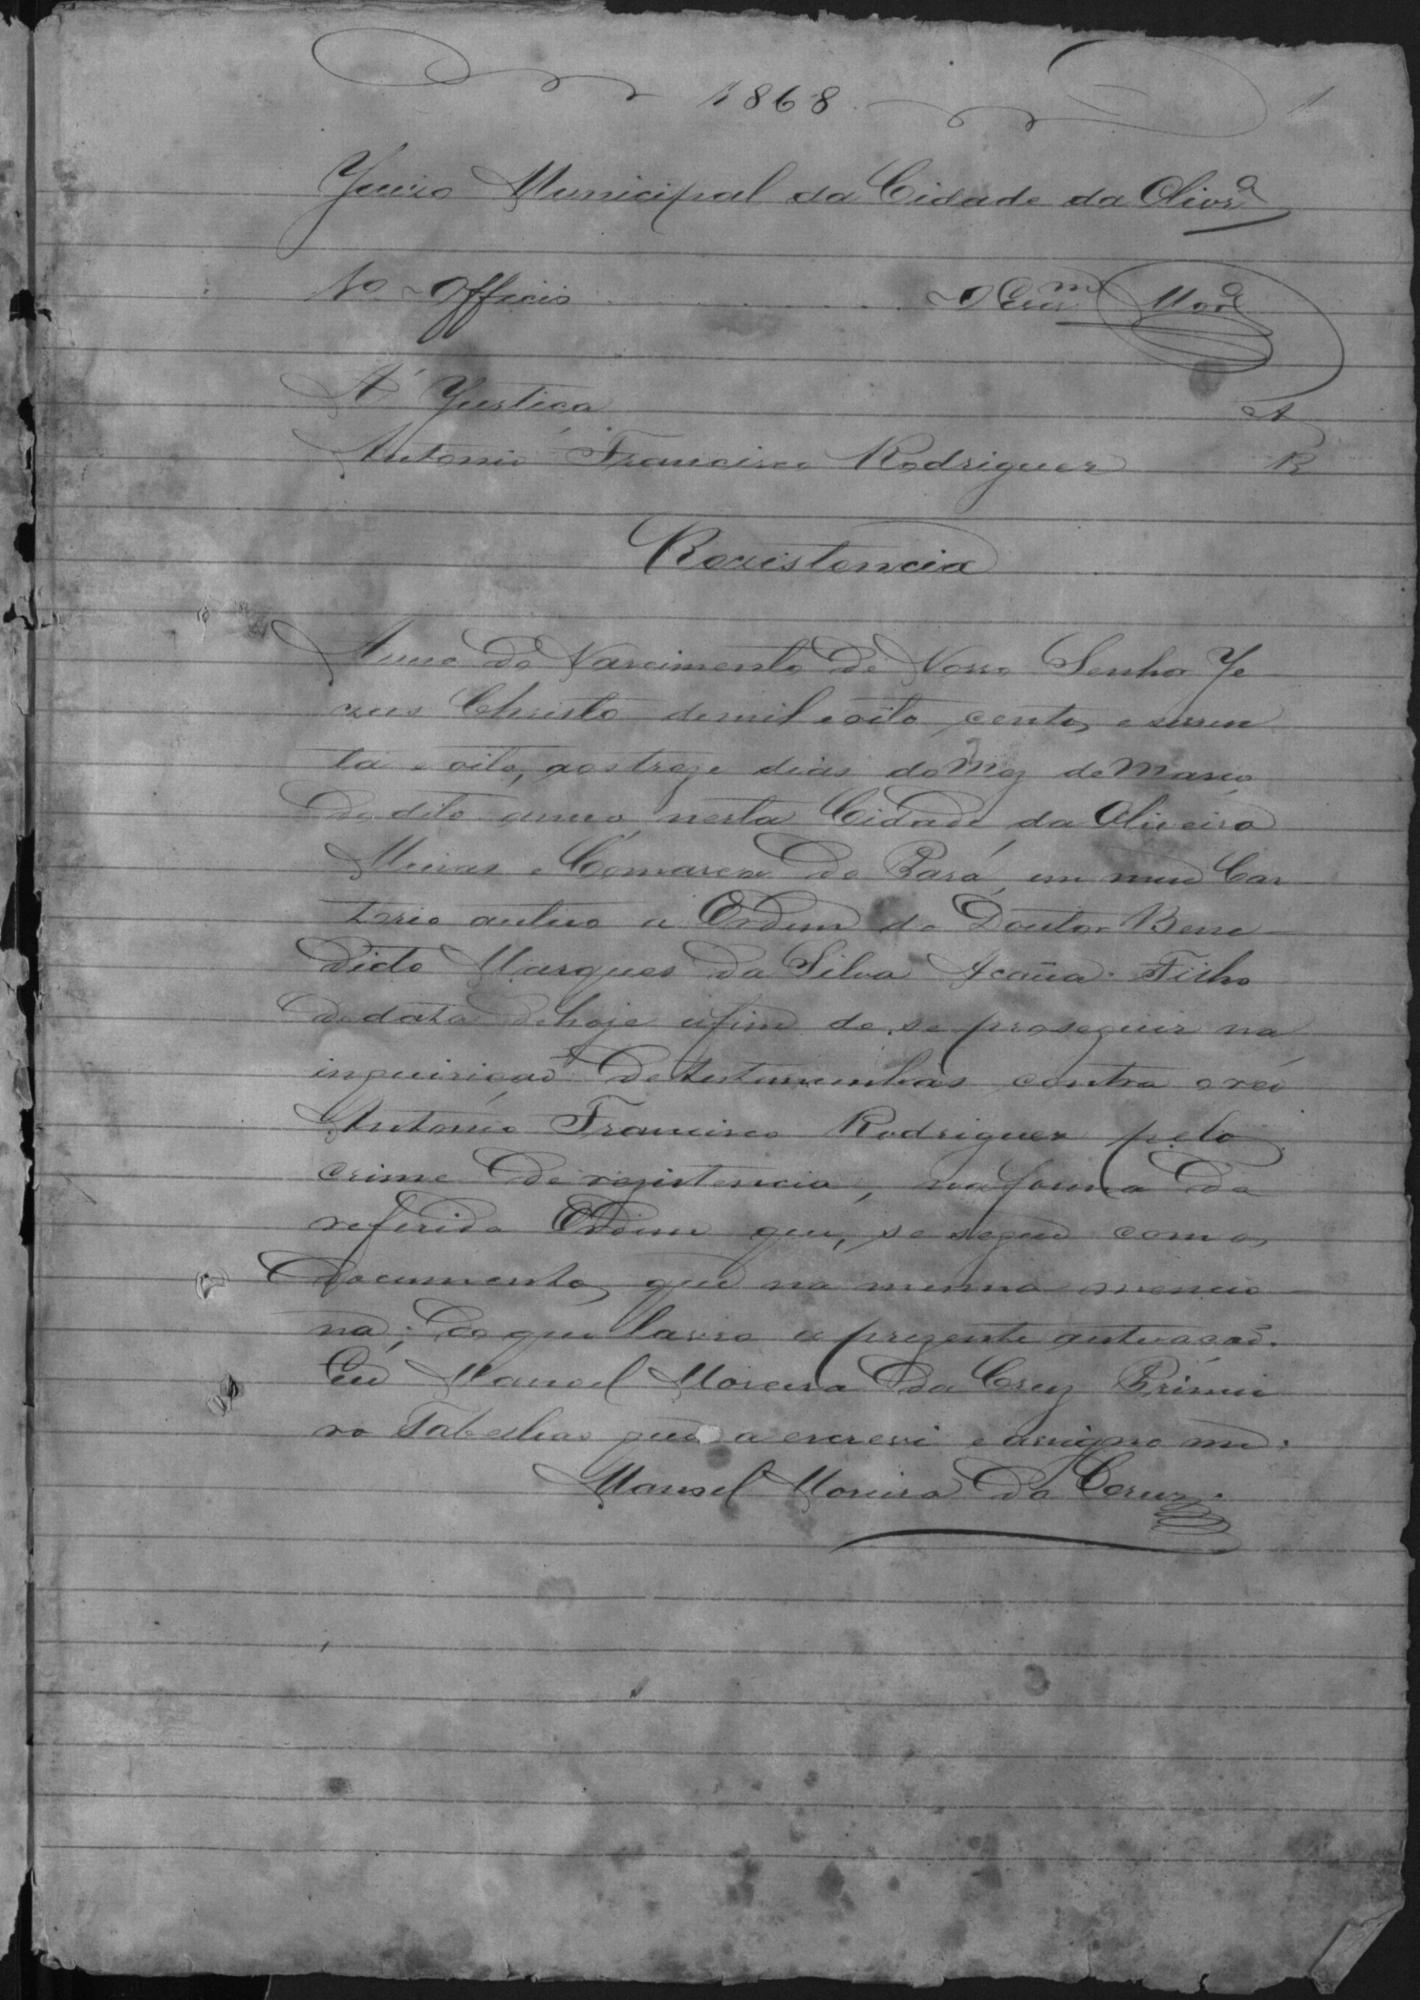 1868
1
Juizo Municipal da Cidade da Olivrª
1º Officio O Escrm Morª
A' Justiça A
Antonio Francisco Rodrigues R
Rezistencia
Anno do Nascimento de Nosso Senhor Je
zus Christo de mil e oito centos, e sessen
ta e oito, aos treze dias do Mez de Março
do dito anno, nesta Cidade da Oliveira
Minas e Comarca do Pará, em meu Car
torio autuo a Ordem do Doutor Bene
dicto Marques da Silva Acauã Filho
de data de hoje afim de se proseguir na
inquirição de testemunhas contra o réo
Antonio Francisco Rodrigues pelo
crime de rezistencia, na forma da
referida Ordem que, se segue com os
documentos, que na mesma mencio
na; do que lavro a prezente autuação.
Eu Manoel Moreira da Cruz Primei
ro Tabelliao que a escrevi e assigno me.
Manoel Moreira da Cruz.